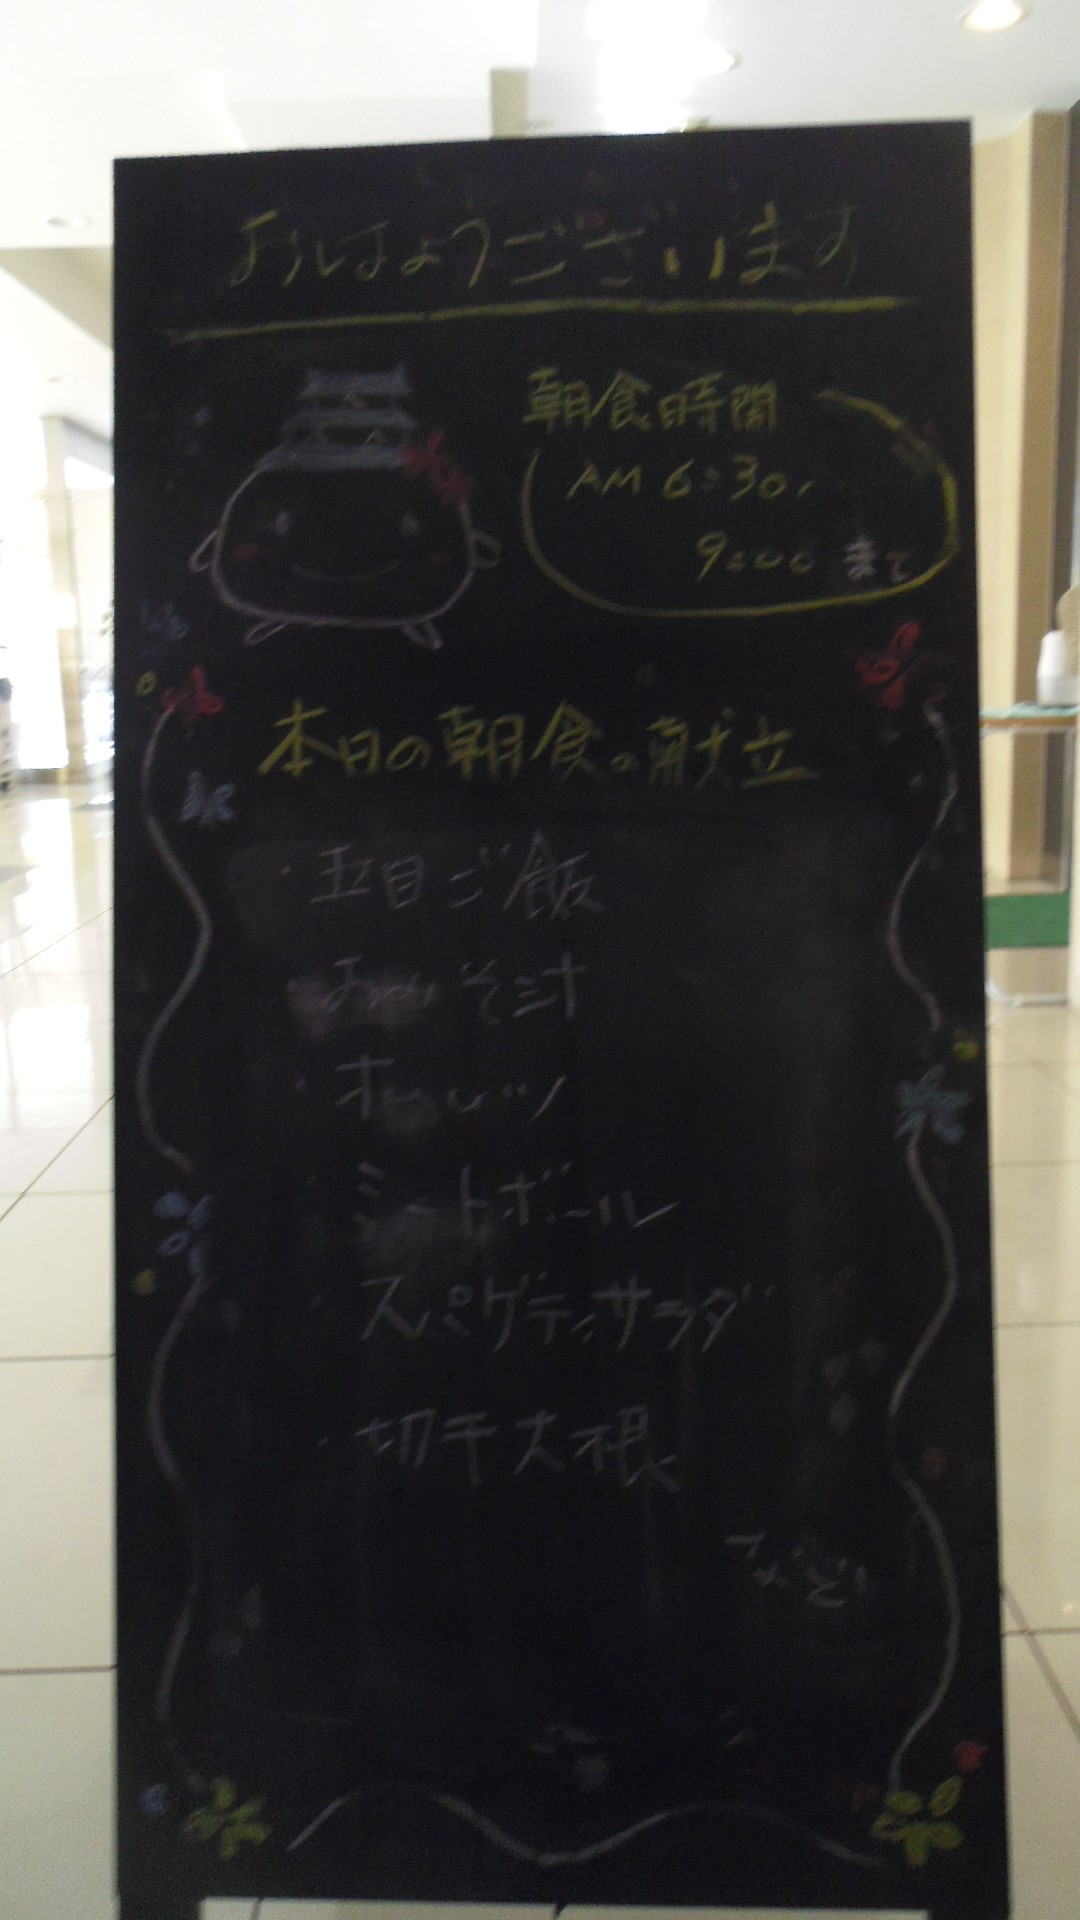 おはようございます
朝食時間
AM 6:30〜
9:00 まで
本日の朝食の献立
・五目ご飯
・おみそ汁
・オムレツ
・ミートボール
・スパゲティサラダ
・切干大根
など